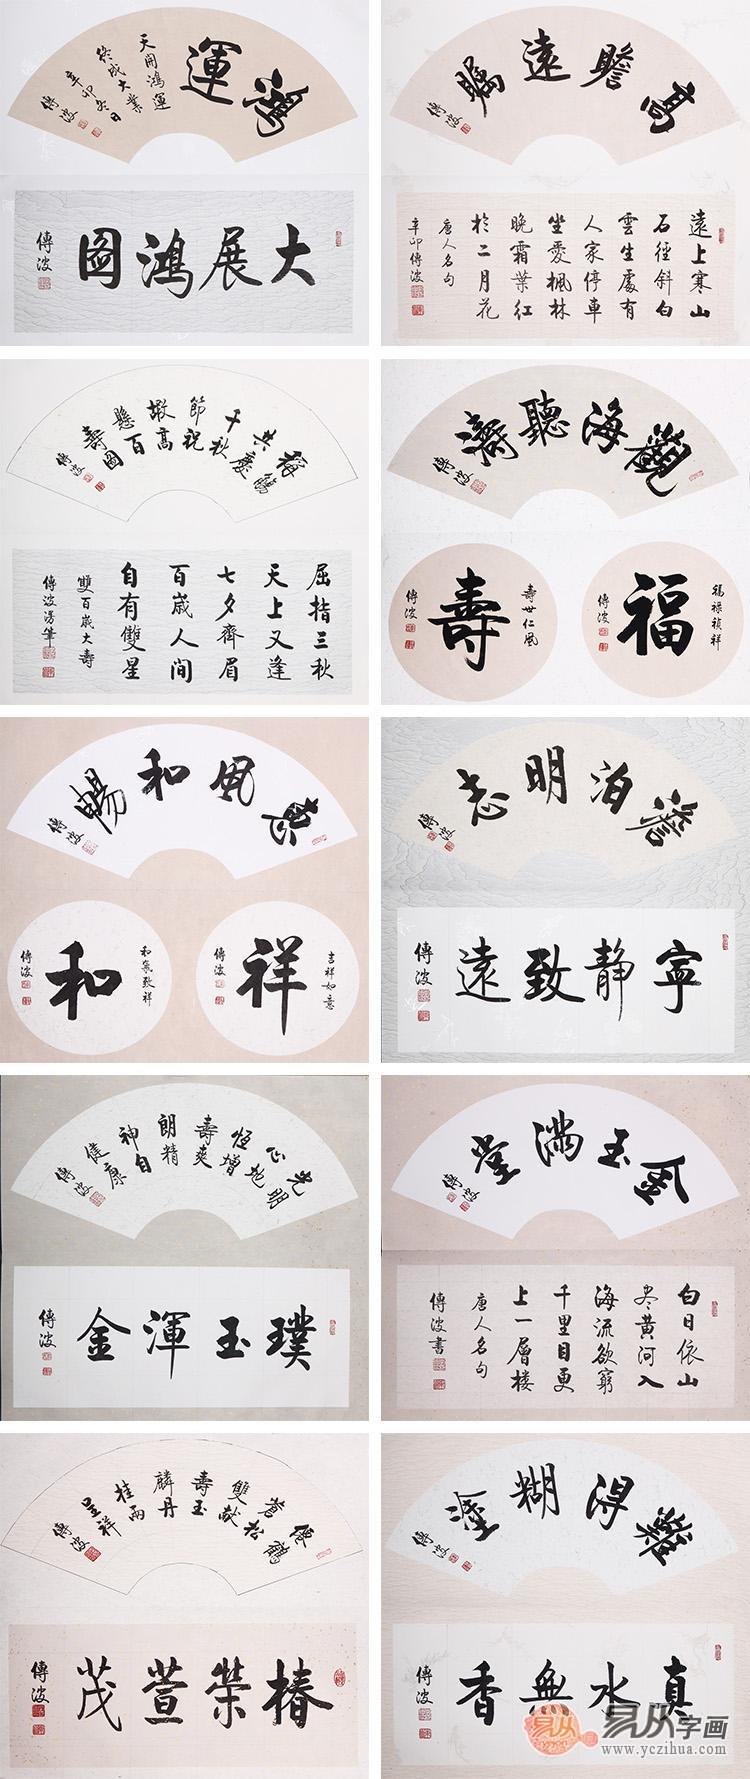 鴻運
天開鴻運
終成大業
辛卯冬日
傳波
大展鴻圖
傳波
高瞻遠矚
傳波
遠上寒山
石徑斜白
雲生處有
人家停車
坐愛楓林
晚霜葉紅
於二月花
唐人名句
辛卯傳波
稱觴
共慶
千秋
節祝
嘏高
懸百
壽圖
傳波
屈指三秋
天上又逢
七夕齊眉
百歲人間
自有雙星
雙百歲大壽
傳波
觀海聽濤
傳波
福祿禎祥
福
傳波
壽世仁風
壽
傳波
惠風和暢
傳波
吉祥如意
祥
傳波
和氣致祥
和
傳波
澹泊明志
傳波
寧静致遠
傳波
光明
正地
恆增
壽爽
朗精
神自
健康
傳波
璞玉渾金
傳波
金玉滿堂
傳波
白日依山
尽黄河入
海流欲窮
千里目更
上一層楼
唐人名句
傳波書
僊鶴
蒼松
雙献
壽玉
麟丹
桂兩
呈祥
傳波
椿榮萱茂
傳波
難得糊塗
傳波
真水無香
傳波
易从字画
www.yczihua.com